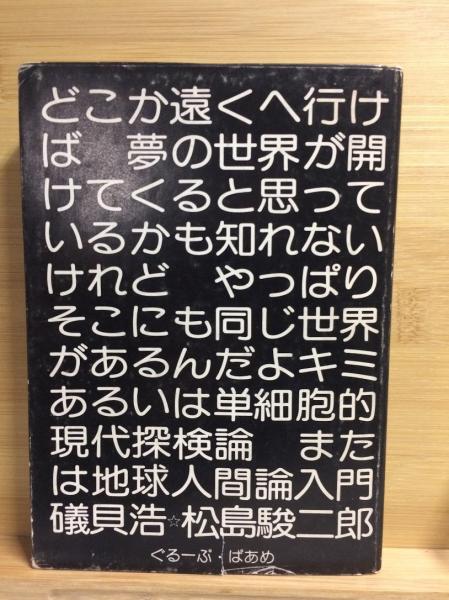 どこか遠くへ行け
ば　夢の世界が開
けてくると思って
いるかも知れない
けれど　やっぱり
そこにも同じ世界
があるんだよキミ
あるいは単細胞的
現代探検論　また
は地球人間論入門
礒貝浩☆松島駿二郎
ぐるーぷ・ぱあめ